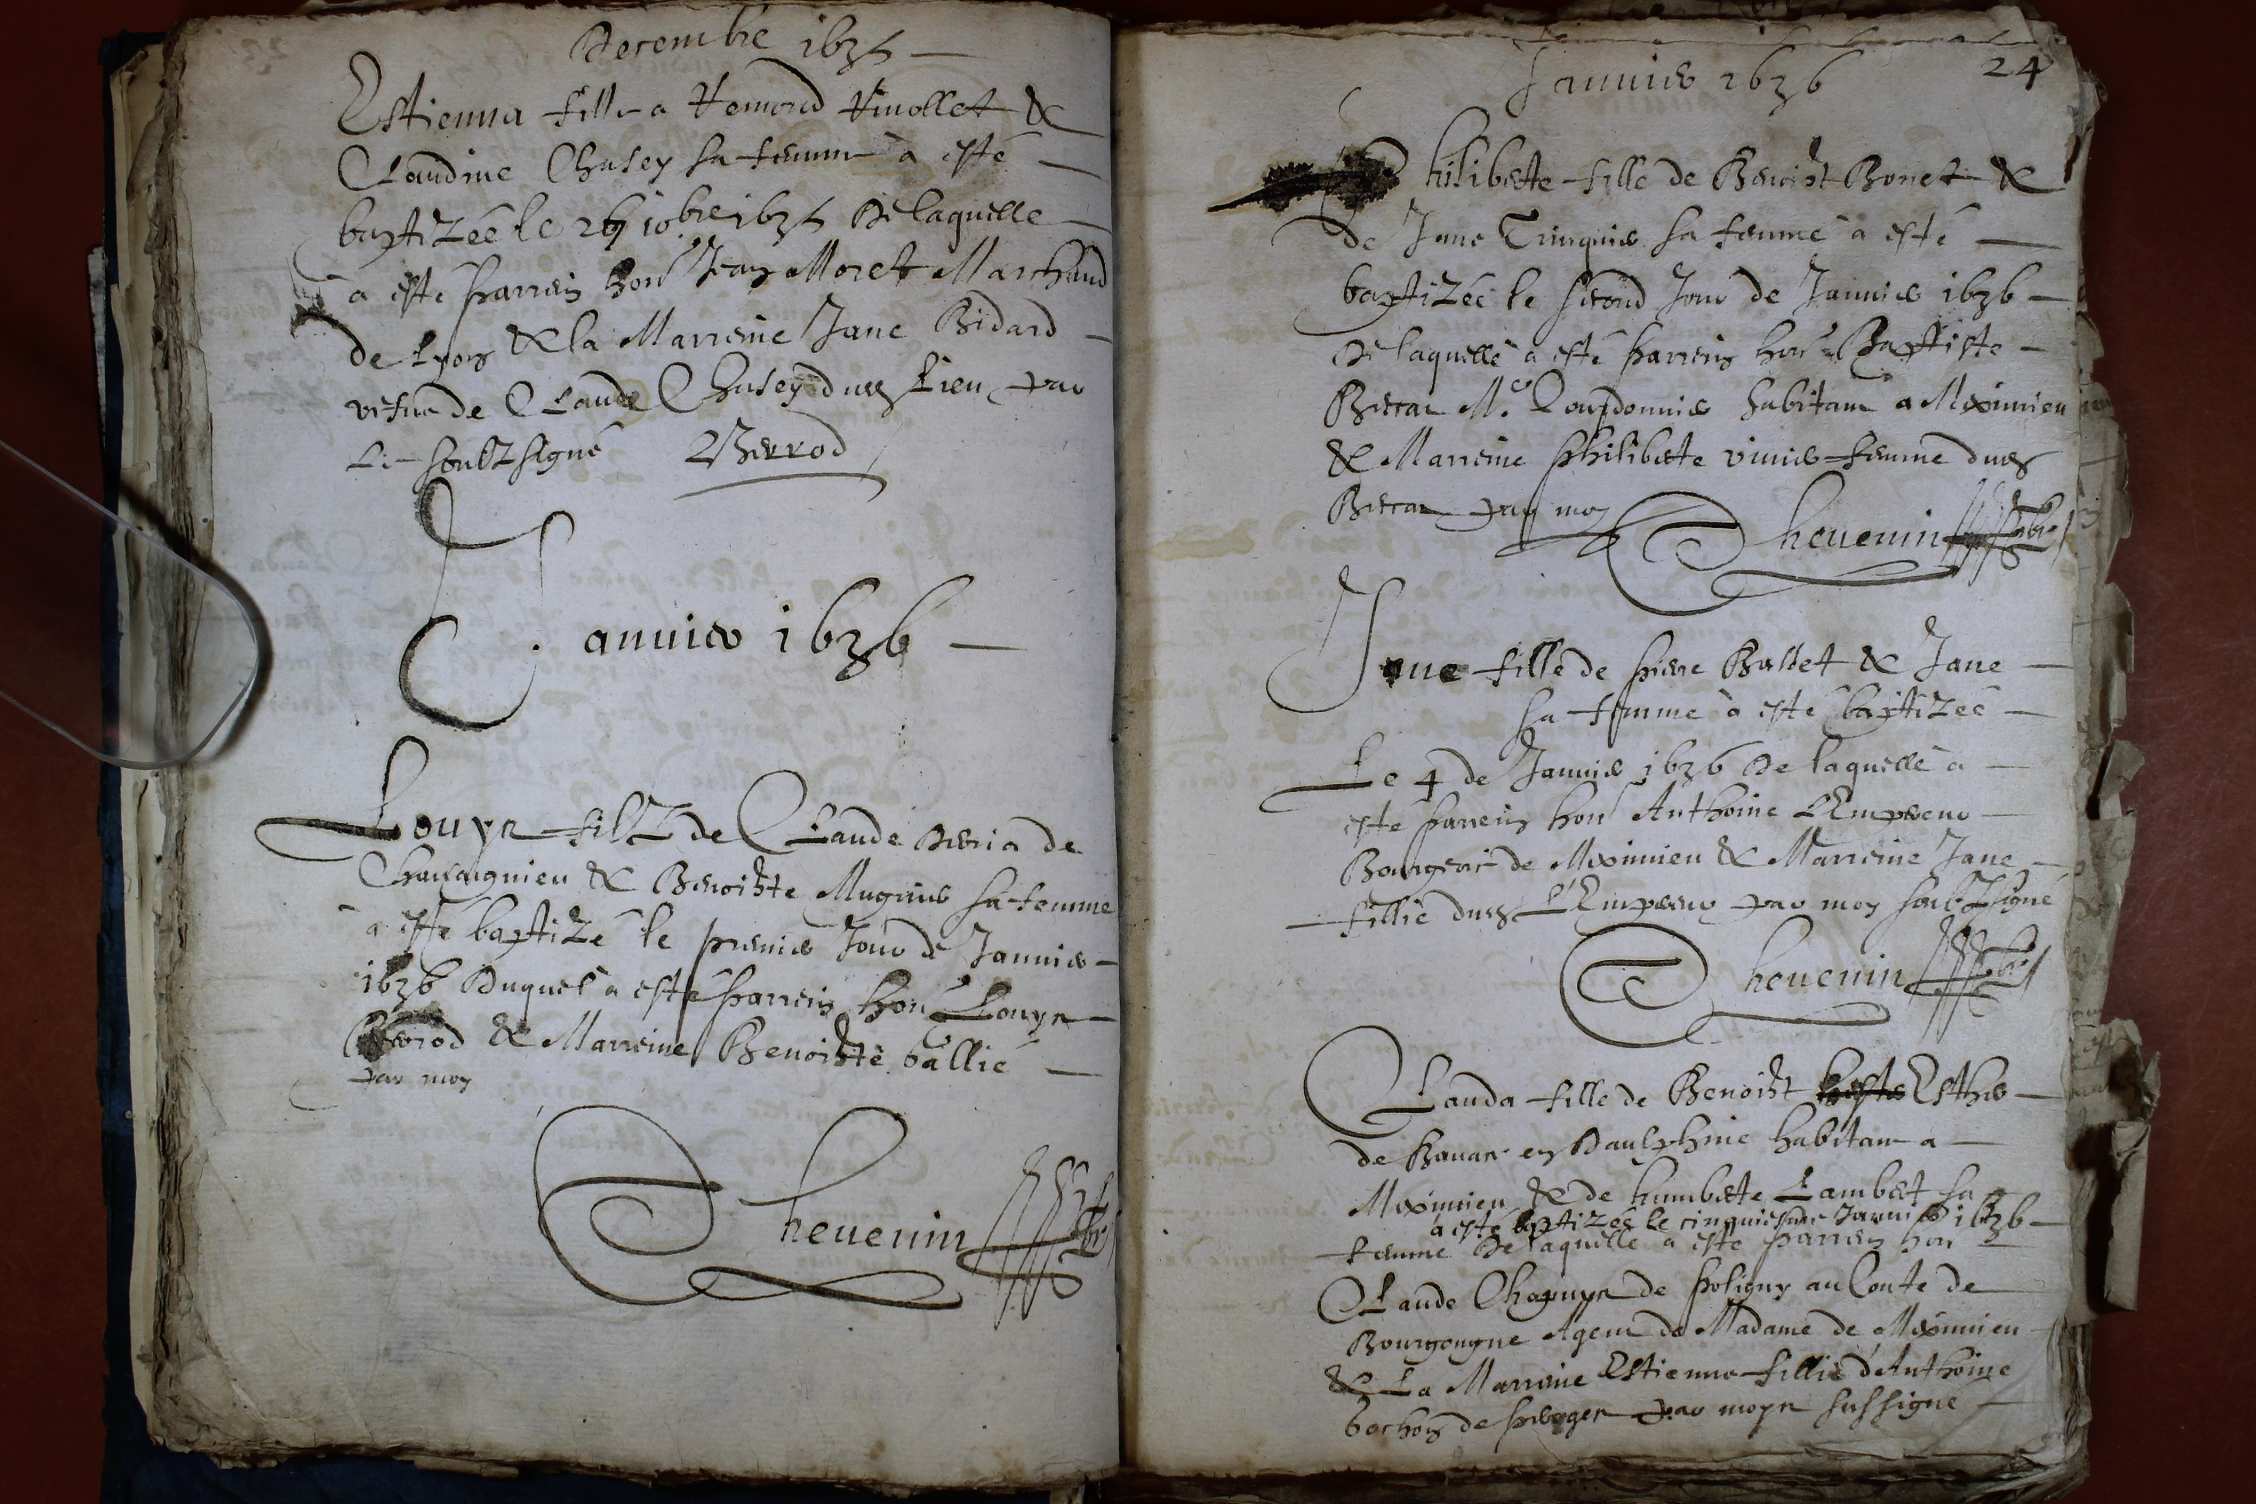 Decembre 1635
Estienna fille a Remond Vinollet &
Claudine Chasey sa femme à esté
baptizée le 26 10bre 1635 De laquelle
a esté parrein hon Jean Moret Marchand
de Lyon & la Marreine Jane Bidard
vefue de Claude Chasey dud Lieu par
Le soubzsigné Berrod
Januier 1636
Louys filz de Claude Deria de
Chauagnieu & Benoiste Mugnier sa femme
a esté baptizé le premier Jour de Januier
1636 Duquel a esté parrein hon Louys
Berrod & Marreine Benoiste ballie
par moy
Theuenin
24
Januier 1636
Philiberte fille de Benoist Bonet &
de Jane sa femme a esté
baptizée le second Jour de Januier 1636
De laquelle a esté parrein hon Baptiste
Biscar Me Courdonnier habitant a Meximieu
& Marreine Philiberte viuier femme dud
Biscar par moy
Theuenin
Jane fille de pierre Ballet & Jane
sa femme a esté baptizée
Le 4 de Januier 1636 De laquelle a
esté parrein hon Anthoine L'Empereur
Bourgeois de Meximieu & Marreine Jane
fillie dud L'Empereur par moy soubzsigné
Theuenin
Clauda fille de Benoist Esthier
de en Daulphine habitant a
Meximieu & de humberte Lambert sa
a esté baptizée le cinquiesme Januier 1636
femme De laquelle a esté parrein hon
Claude Chapuys de Poligny au Conte de
Bourgongne Agent de Madame de Meximieu
& La Marreine Estienne fillie d'Anthoine
bochon de par moy sussigne